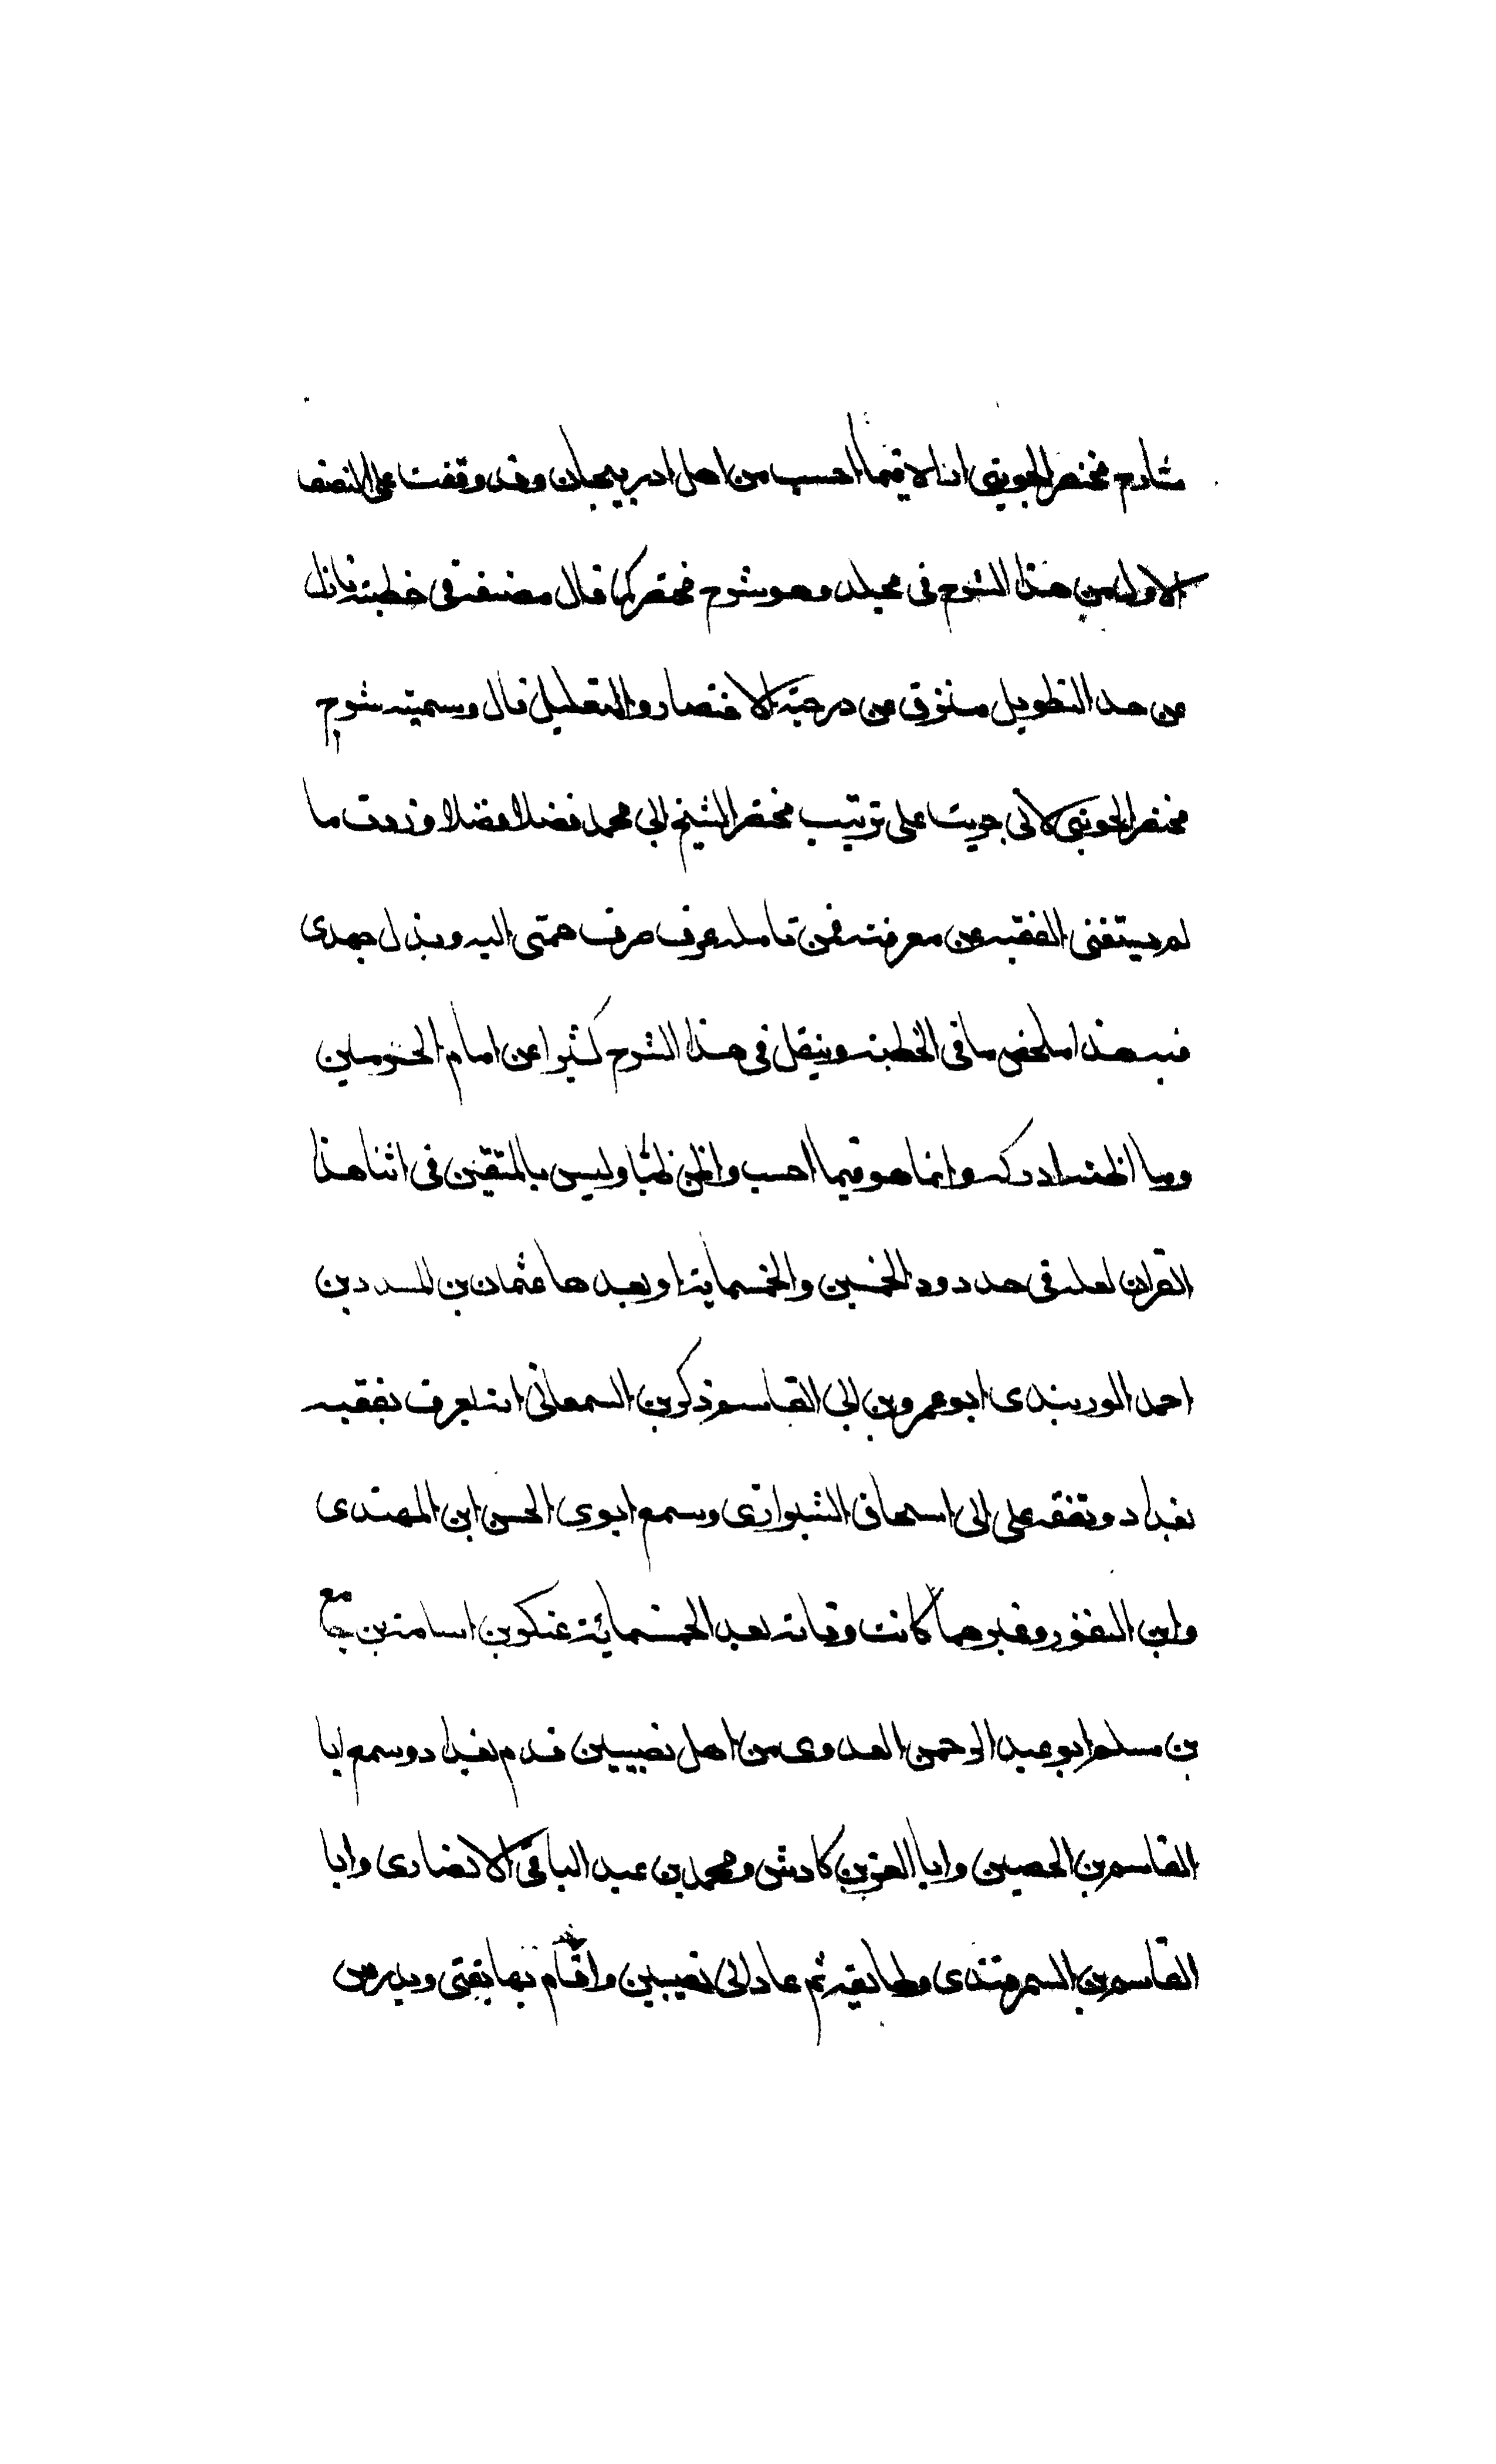 شارح مختصر الجوينى انا لا قيما احسب من اهل ادربيجان وقد وقفت على النصف
الاول من هذا الشرح فى مجلد وهو شرح مختصر كما قال مصنفه فى خطبته نازل
عن حد التطويل مترق عن درجة الاختصار والتعليل قال وسميته شرح
مختصر الجوينى لانى جريت على ترتيب مختصر الشيخ ابى محمد فصلا فصلا وزدت ما
لم يستغنى الفقيه عن معرفته فمن تامله عرف صرف همتى اليه وبذل جهدى
فيه هذا ملخص ما فى الخطبة وينقل فى هذا الشرح كثيرا عن امام الحرمين
وما اظنه ادركه وانما هو فيما احسب واظن ظنا وليس بالمتيقن فى اثنا هذا
القرن لعله فى حدود الخمسين والخمسماية او بعدها عثمان بن المسدد بن
احمد الدربندى ابو عمرو بن ابى القاسم ذكر بن السمعانى انه يعرف بفقيه
بغداد وتفقه على ابى اسحاق الشيرازى وسمع ابوى الحسن ابن المهتدى
وابن النقور وغيرهما كانت وفاته بعد الخمسمائة عسكر بن اسامة بن جامع
بن مسلم ابو عبد الرحمن العدوى من اهل نصيبين قدم بغداد وسمع ابا
القاسم بن الحصين وابا العز بن كادش ومحمد بن عبد الباقى الانصارى وابا
القاسم بن السمرقندى وطايفه ثم عاد الى نصيبين واقام بها يفتى ويدرس